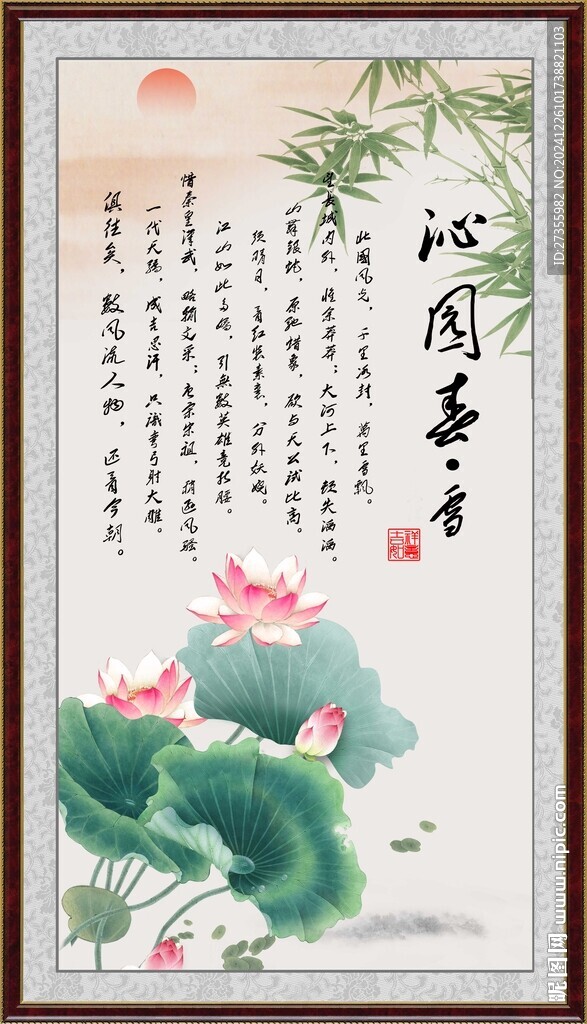 沁园春·雪
此國风光，千里冰封，萬里雪飘。
望長城内外，惟余莽莽；大河上下，顿失滔滔。
山舞银蛇，原驰蜡象，欲与天公试比高。
须晴日，看红装素裹，分外妖娆。
江山如此多娇，引無數英雄竞折腰。
惜秦皇漢武，略输文采；唐宗宋祖，稍逊风骚。
一代天骄，成吉思汗，只識弯弓射大雕。
俱往矣，數风流人物，还看今朝。
吉祥如意
ID:27355982 NO:20241226101738821103
昵图网 www.nipic.com